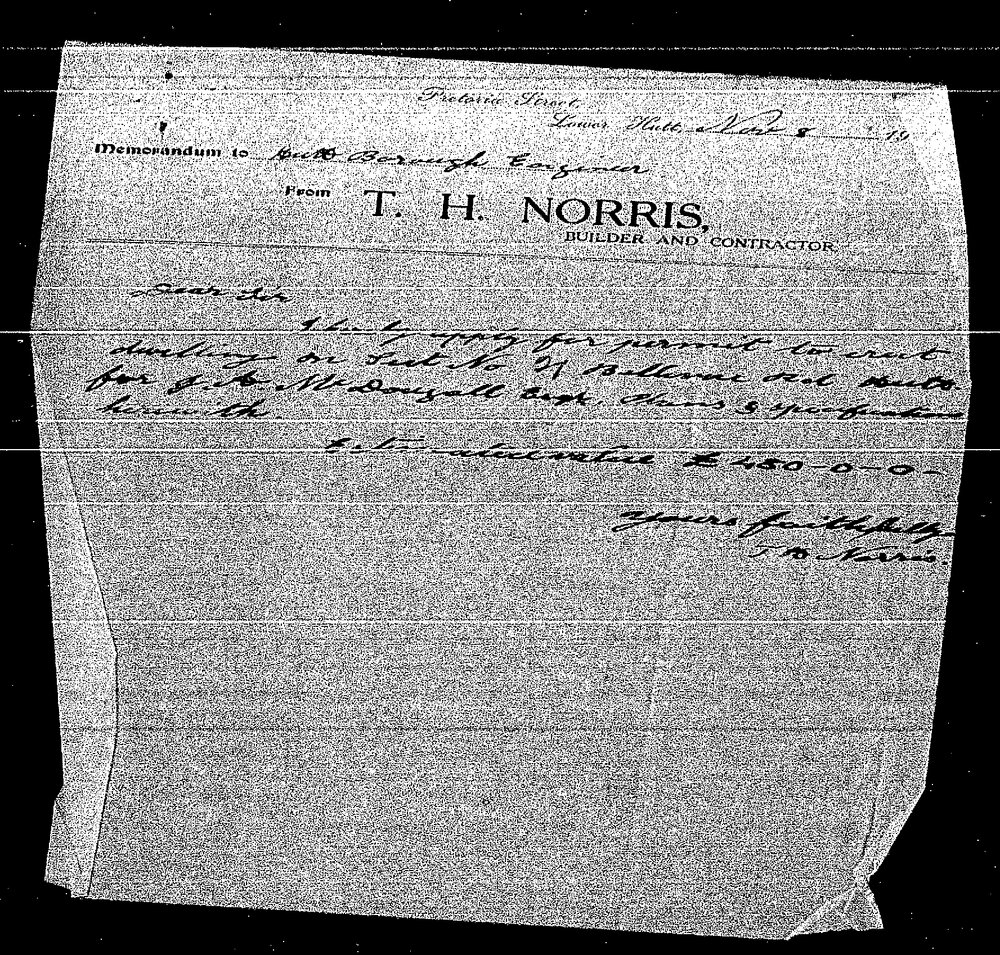 Pretoria Street,
Lower Hutt, Nov 8 19
Memorandum to Hutt Borough Engineer
From T. H. NORRIS,
BUILDER AND CONTRACTOR.
Dear Sir
I hereby apply for permit to erect
dwelling on Sect No Bellevue Hutt
for McDougall Esqr. Plans & specifications
herewith
Estimated value £ 450-0-0-
Yours faithfully
T H Norris.